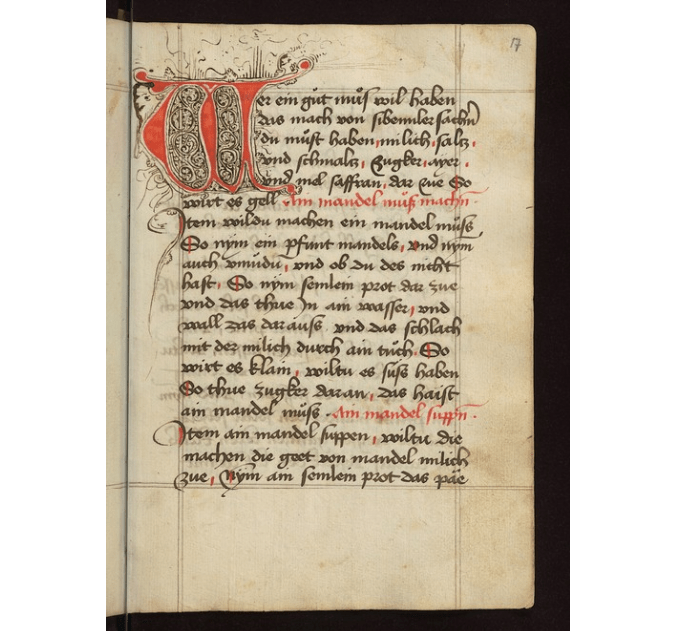 17
Wer ein gůt můs wil haben
das mach von sibennler sachñ
du můst haben, milich, saltz,
vnd schmaltz, Zugker, ayer,
vnd mel saffran, dar zue So
wirt es gell Ain mandel můß machñ.
Item wildu machen ein mandel můss
So nym ein pfunt mandels, vnd nym
auch vmudu, vnd ob du des nicht
hast, So nym semlein prot dar zue
vnd das thue In ain wasser, vnd
wall das dar auss vnd das schlach
mit der milich durch ain tůch. So
wirt es klain, wiltu es süss haben
So thue zugker daran, das haist
ain mandel můss. Ain mandel suppñ.
Item ain mandel suppen, wiltu die
machen die geet von mandel milich
zue, Nym ain semlein prot das päe